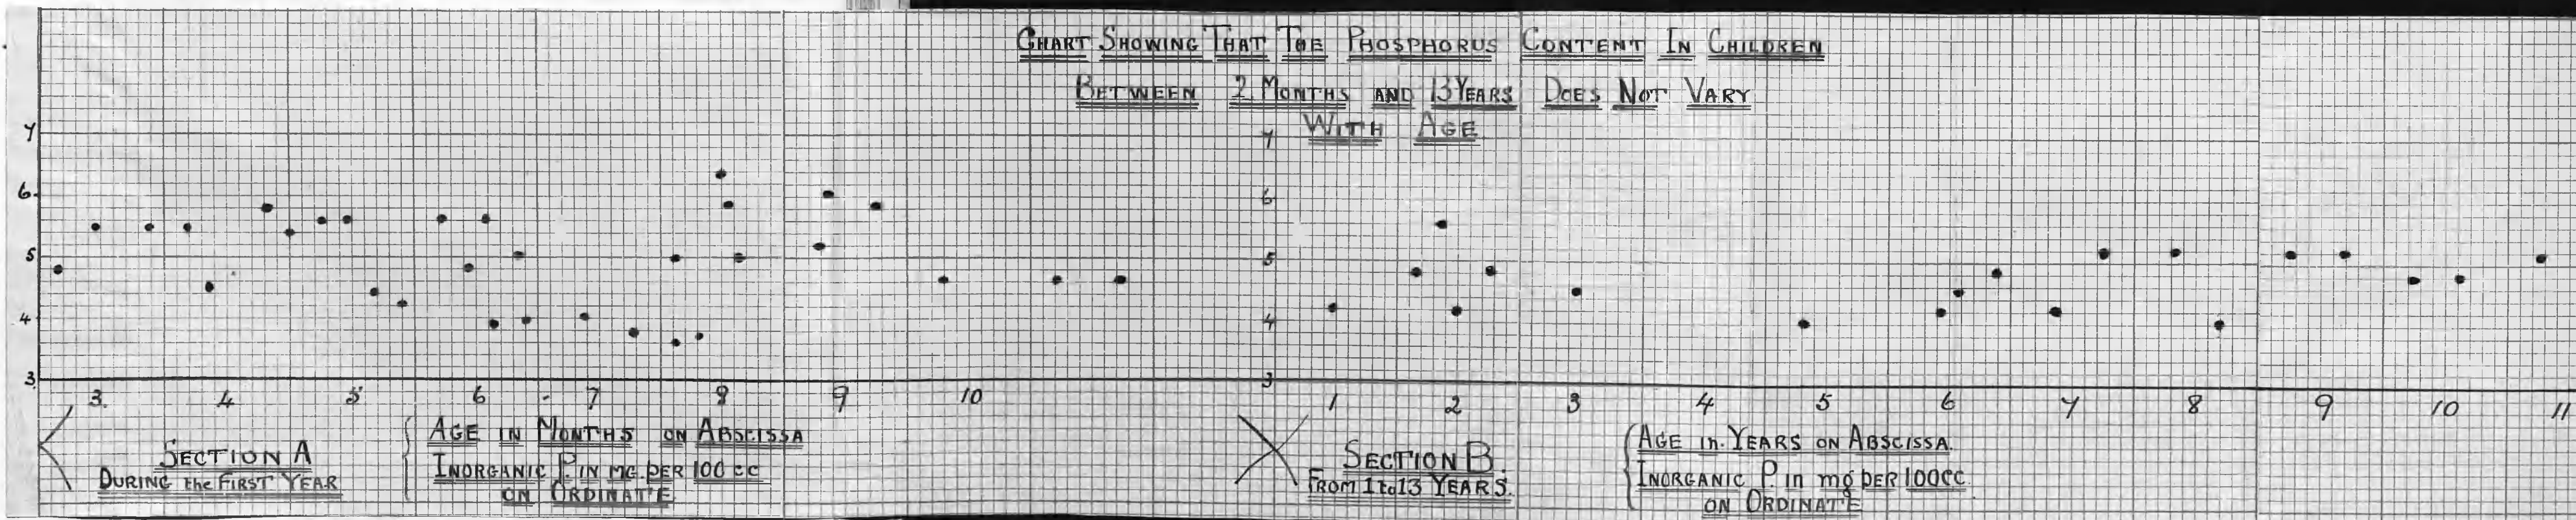 CHART SHOWING THAT THE PHOSPHORUS CONTENT IN CHILDREN
BETWEEN 2 MONTHS AND 13 YEARS DOES NOT VARY
WITH AGE
7
6
5
4
3
7
6
5
4
3
3 4 5 6 7 8 9 10
1 2 3 4 5 6 7 8 9 10 11
SECTION A
DURING the FIRST YEAR
AGE IN MONTHS ON ABSCISSA
INORGANIC P. IN MG. PER 100 CC
ON ORDINATE
SECTION B.
FROM 1 to 13 YEARS.
AGE in YEARS ON ABSCISSA.
INORGANIC P. in mg PER 100CC.
ON ORDINATE